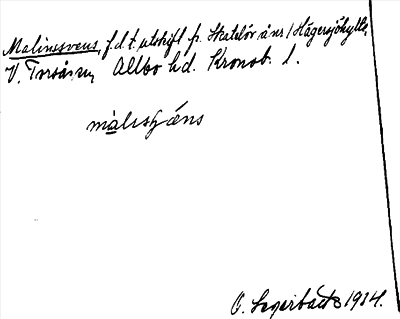 Malinesvens, f.d. t. utskift fr. Skatelövs åns / Hägersjöhylte,
V. Torsås sn, Allbo hd. Kronob. l.
malisfæns
O. Segerbäck 1934.